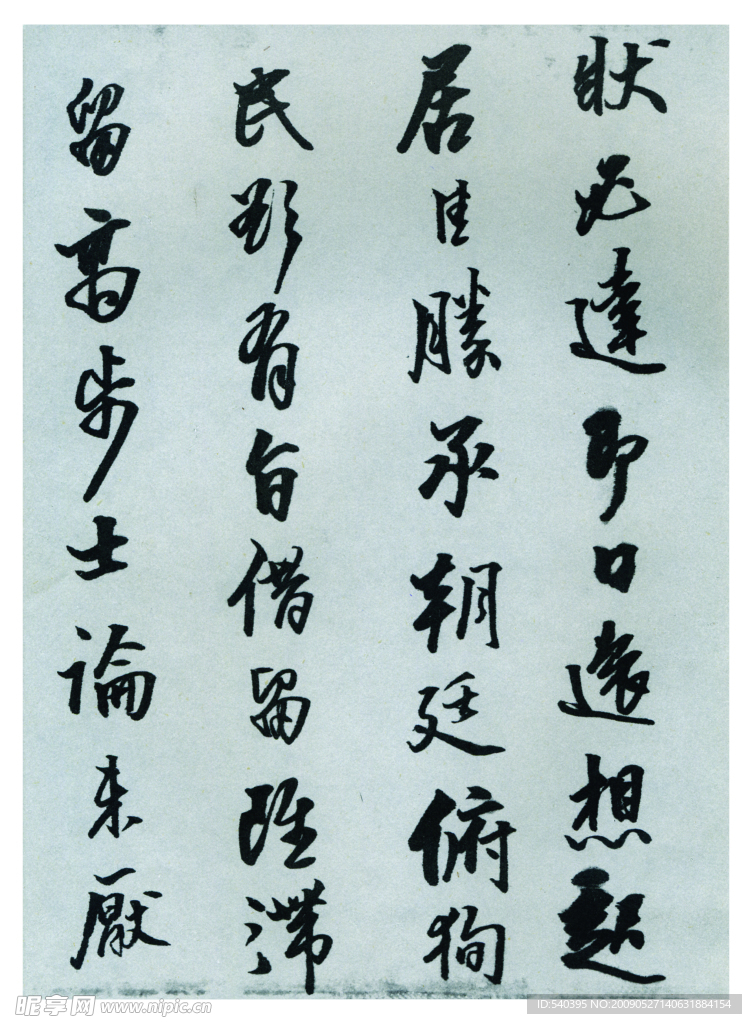 狀必達即日遠想起
居佳勝承朝廷俯徇
民欲有旨借留雖滯
留高步士論未厭
昵享网 www.nipic.cn
ID:540395 NO:20090527140631884154